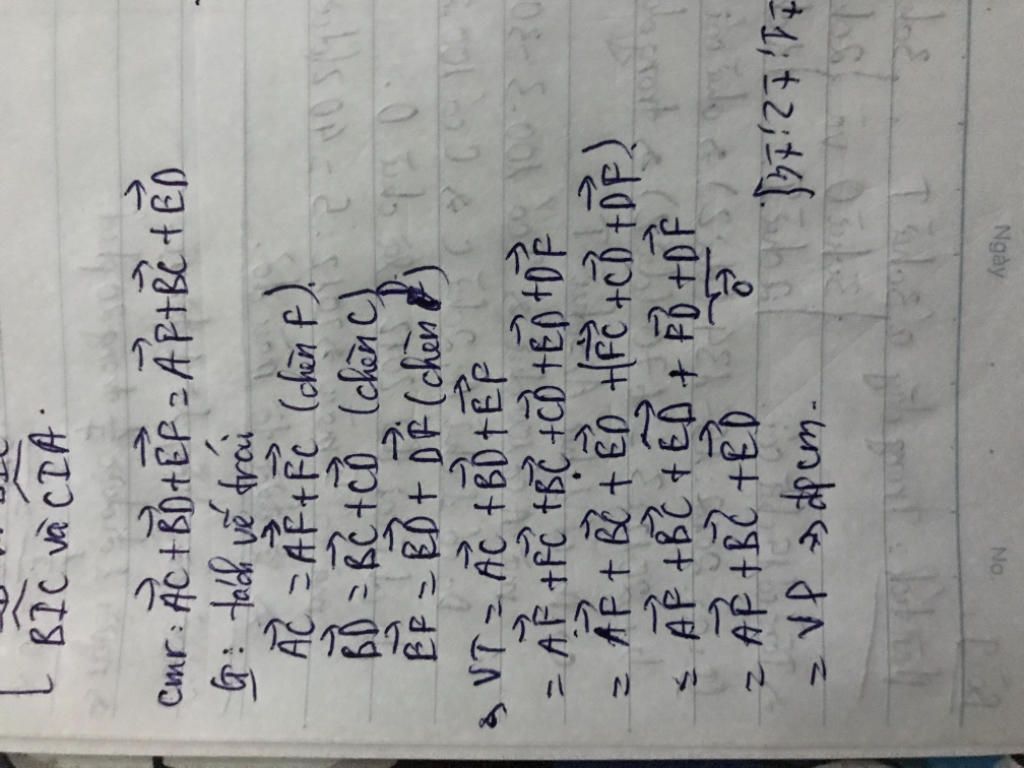 BIC và CIA.
cmr: AC + BD + EF = AF + BC + ED
G: tách vế trái
AC = AF + FC (chèn F)
BD = BC + CD (chèn C)
EF = ED + DF (chèn D)
→ VT = AC + BD + EF
= AF + FC + BC + CD + ED + DF
= AF + BC + ED + (FC + CD + DF)
= AF + BC + ED + FD + DF
0
= AF + BC + ED
= VP → đpcm.
±1; ±2; ±4}
Ngày
No.